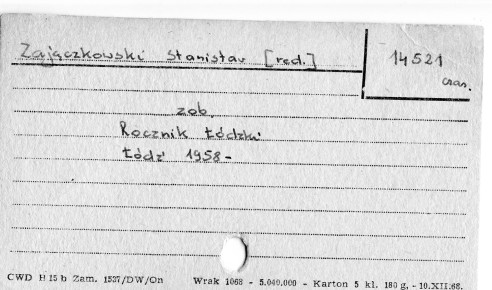 Zajączkowski Stanisław [red.]
14521
czas.
zob.
Rocznik Łódzki
Łódź 1958-
CWD H 15 b Zam. 1537/DW/On Wrak 1068 - 5.040.000 - Karton 5 kl. 180 g, - 10.XII.68.